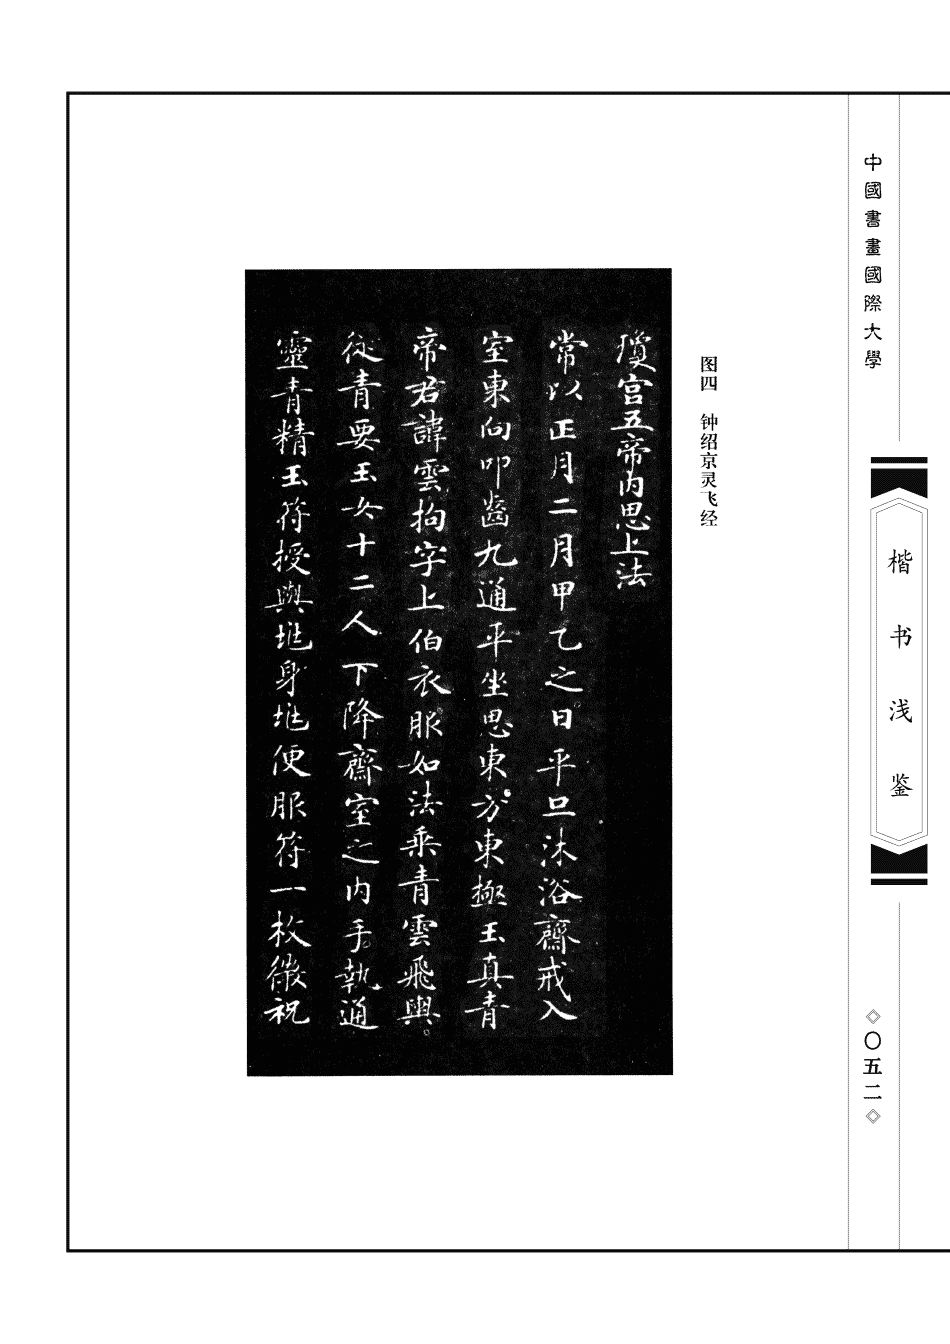 中國書畫國際大學
楷书浅鉴
〇五二
图四 钟绍京灵飞经
瓊宮五帝內思上法
常以正月二月甲乙之日平旦沐浴齋戒入
室東向叩齒九通平坐思東方東極玉真青
帝君諱雲拘字上伯衣服如法乘青雲飛輿
從青要玉女十二人下降齋室之內手執通
靈青精玉符授與兆身兆便服符一枚微祝